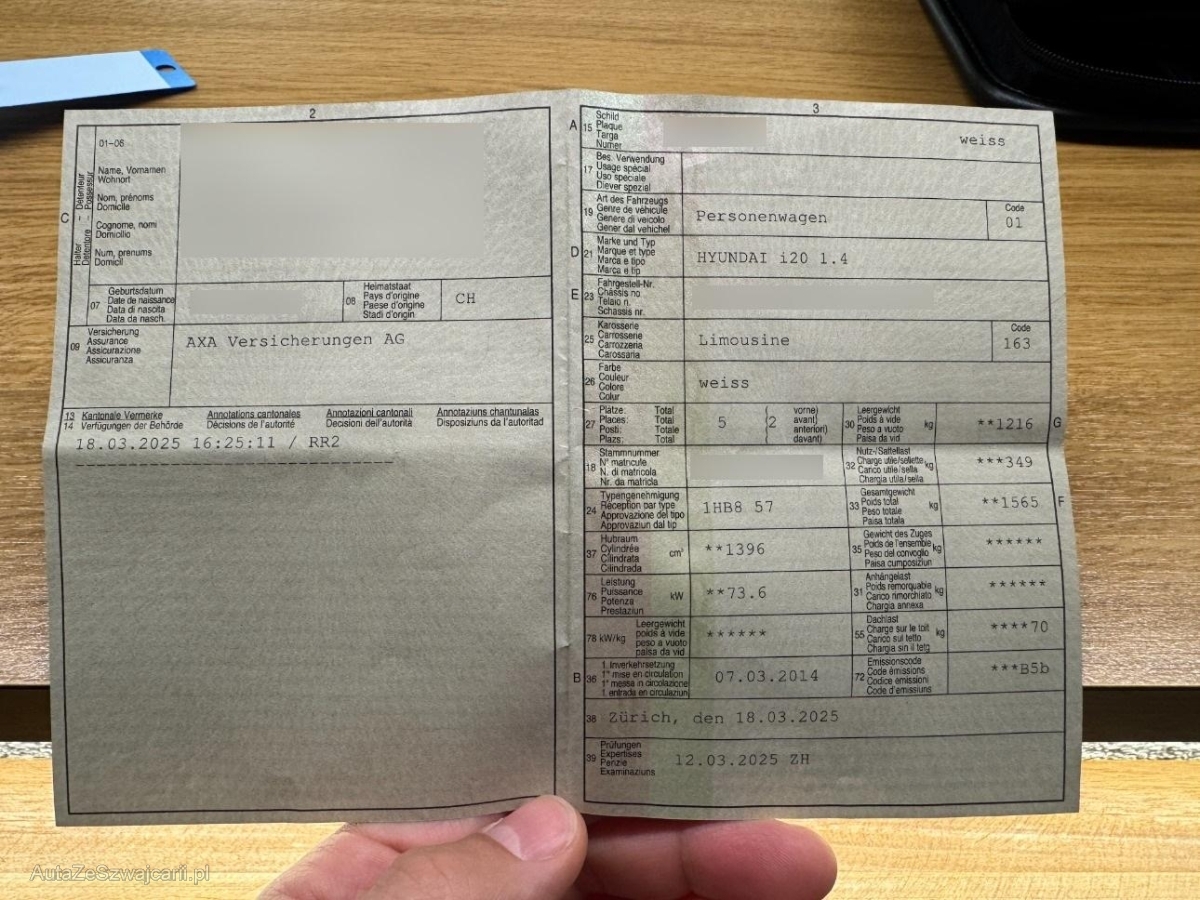 2
C
Halter – Détenteur
Detentore – Possessur
01–06
Name, Vornamen
Wohnort
Nom, prénoms
Domicile
Cognome, nomi
Domicilio
Num, prenums
Domicil
07
Geburtsdatum
Date de naissance
Data di nascita
Data da nasch.
08
Heimatstaat
Pays d'origine
Paese d'origine
Stadi d'origin
CH
09
Versicherung
Assurance
Assicurazione
Assicuranza
AXA Versicherungen AG
13 Kantonale Vermerke Annotations cantonales Annotazioni cantonali Annotaziuns chantunalas
14 Verfügungen der Behörde Décisions de l'autorité Decisioni dell'autorità Disposiziuns da l'autoritad
18.03.2025 16:25:11 / RR2
3
A
15
Schild
Plaque
Targa
Numer
weiss
17
Bes. Verwendung
Usage spécial
Uso speciale
Diever spezial
19
Art des Fahrzeugs
Genre de véhicule
Genere di veicolo
Gener dal vehichel
Personenwagen
Code
01
D
21
Marke und Typ
Marque et type
Marca e tipo
Marca e tip
HYUNDAI i20 1.4
E
23
Fahrgestell-Nr.
Châssis no
Telaio n.
Schassis nr.
25
Karosserie
Carrosserie
Carrozzeria
Carossaria
Limousine
Code
163
26
Farbe
Couleur
Colore
Colur
weiss
27
Plätze: Total
Places: Total
Posti: Totale
Plazs: Total
5
(2
vorne)
avant)
anteriori)
davant)
30
Leergewicht
Poids à vide
Peso a vuoto
Paisa da vid
kg
**1216
G
18
Stammnummer
N° matricule
N. di matricola
Nr. da matricla
32
Nutz-/Sattellast
Charge utile/sellette
Carico utile/sella
Chargia utila/sella
kg
***349
24
Typengenehmigung
Réception par type
Approvazione del tipo
Approvaziun dal tip
1HB8 57
33
Gesamtgewicht
Poids total
Peso totale
Paisa totala
kg
**1565
F
37
Hubraum
Cylindrée
Cilindrata
Cilindrada
cm³
**1396
35
Gewicht des Zuges
Poids de l'ensemble
Peso del convoglio
Paisa cumposiziun
kg
******
76
Leistung
Puissance
Potenza
Prestaziun
kW
**73.6
31
Anhängelast
Poids remorquable
Carico rimorchiato
Chargia annexa
kg
******
78 kW/kg
Leergewicht
poids à vide
peso a vuoto
paisa da vid
******
55
Dachlast
Charge sur le toit
Carico sul tetto
Chargia sin il tetg
kg
****70
B
36
1. Inverkehrsetzung
1re mise en circulation
1a messa in circolazione
1. entrada en circulaziun
07.03.2014
72
Emissionscode
Code émissions
Codice emissioni
Code d'emissiuns
***B5b
38 Zürich, den 18.03.2025
39
Prüfungen
Expertises
Perizie
Examinaziuns
12.03.2025 ZH
AutaZeSzwajcarii.pl